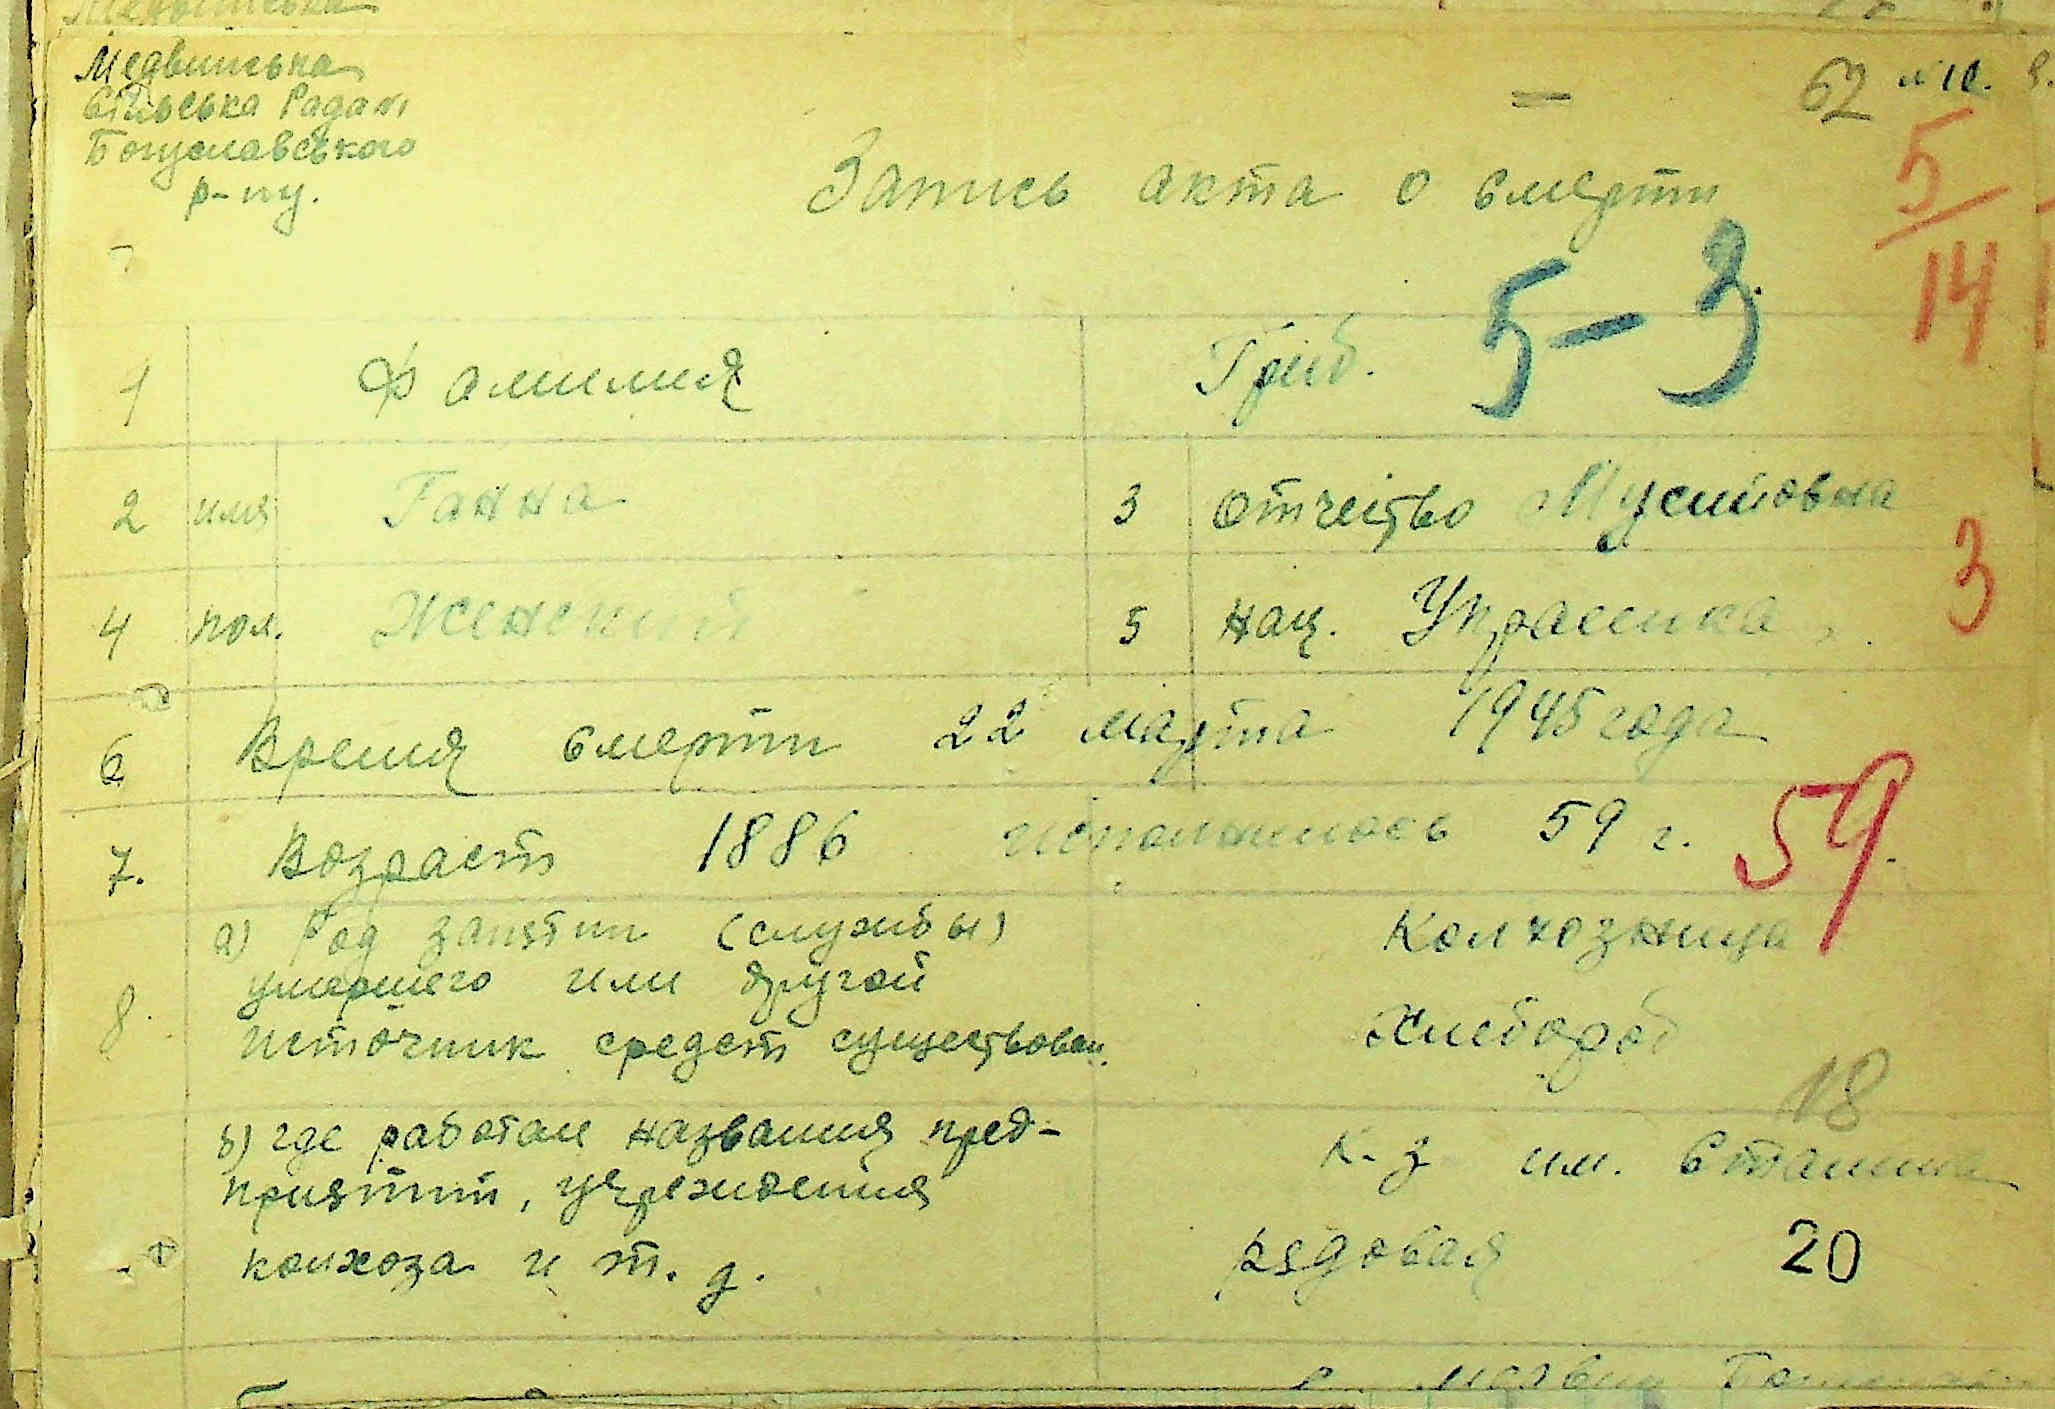 Медвинська
Сільська Рада
Богуславського
р-ну.
62
Запись акта о смерти
5/14
5-3
1 Фамилия Гриб.
2 имя Ганна 3 Отчество Мусийовна
3
4 пол. Женский 5 нац. Украинка
6 Время смерти 22 марта 1945 года
7. Возраст 1886 исполнилось 59 г. 59
8. а) Род занятий (службы) Колхозница
умершего или другой
источник средств существован. Хлебороб
18
б) где работал названия пред- К-з им. Сталина
приятий, учреждения
колхоза и т. д. рядовая 20